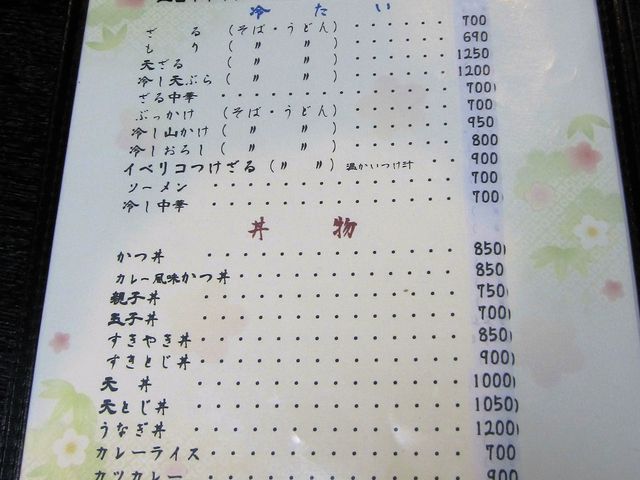 冷たい
ざる (そば・うどん) 700
もり (〃 〃) 690
天ざる (〃 〃) 1250
冷し天ぷら (〃 〃) 1200
ざる中華 700
ぶっかけ (そば・うどん) 700
冷し山かけ (〃 〃) 950
冷しおろし (〃 〃) 800
イベリコつけざる (〃 〃) 温かいつけ汁 900
ソーメン 700
冷し中華 700
丼物
かつ丼 850
カレー風味かつ丼 850
親子丼 750
玉子丼 700
すきやき丼 850
すきとじ丼 900
天丼 1000
天とじ丼 1050
うなぎ丼 1200
カレーライス 700
カツカレー 900